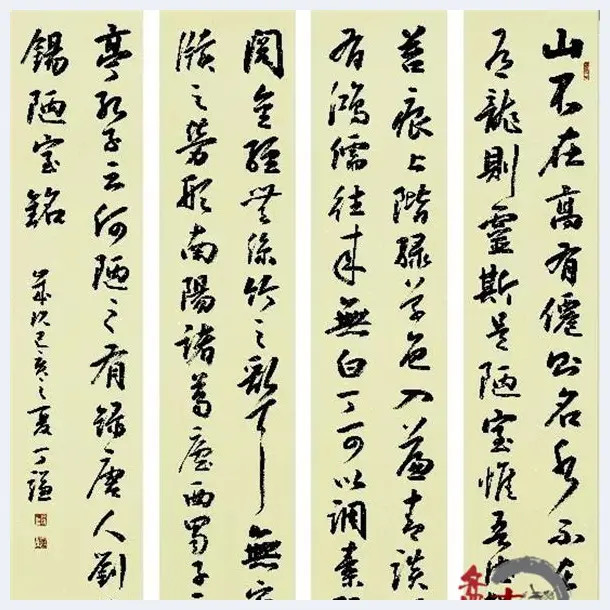 山不在高有僊則名水不在
有龍則靈斯是陋室惟吾德
苔痕上階綠草色入簾青談
有鴻儒往來無白丁可以調素
閱金經無絲竹之亂耳無案
牘之勞形南陽諸葛廬西蜀子
亭孔子云何陋之有錄唐人劉
錫陋室銘
歲次己亥之夏丁謙